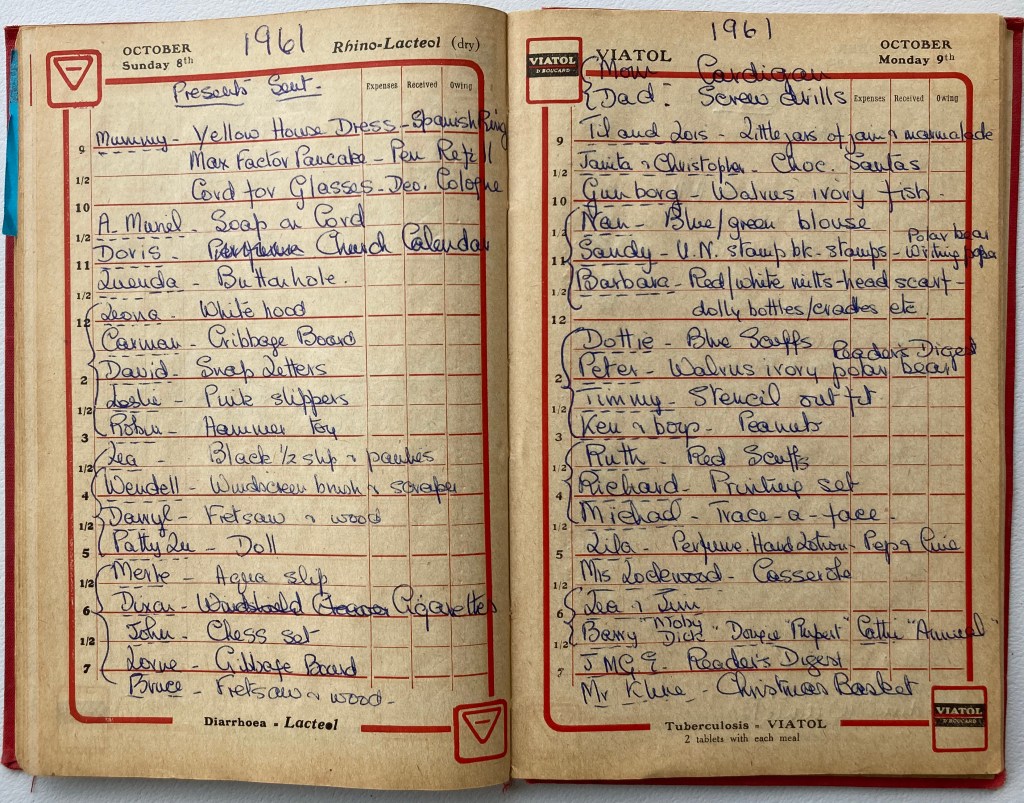 1961
OCTOBER
Sunday 8th
Rhino-Lacteol (dry)
Presents Sent.
Expenses Received Owing
Mummy - Yellow House Dress - Spanish Ring
9
Max Factor Pancake - Pen Refill
1/2
Cord for Glasses - Deo. Cologne
10
A. Muriel. Soap on Cord
1/2
Doris - Perfume Church Calendar
11
Quenda - Buttonhole.
1/2
Leona - White hood
12
Carman - Cribbage Board
David - Snap Letters
2
Leslie - Pink slippers
1/2
Robin - Hammer toy
3
Lea - Black 1/2 slip & panties
1/2
Wendell - Windscreen brush & scraper
4
Darryl - Fretsaw & wood
1/2
Patty Lu - Doll
5
Merle - Aqua slip
1/2
Dixon - Cigarettes
6
John - Chess set
1/2
Lorne - Cribbage Board
7
Bruce - Fretsaw & wood -
Diarrhoea - Lacteol
1961
VIATOL
D BOUCARD
VIATOL
OCTOBER
Monday 9th
Mom Cardigan
Dad: Screw drills
Expenses Received Owing
Til and Lois - Little jars of jam & marmalade
9
Janita & Christopher - Choc. Santas
1/2
Gunborg - Walrus ivory fish -
10
Nan - Blue/green blouse
1/2
Polar bear
Sandy - U.N. stamp bk - stamps - Writing paper
11
Barbara - Red/white mitts - head scarf -
1/2
dolly bottles/cradles etc.
12
Dottie - Blue Scuffs
Reader's Digest
Peter - Walrus ivory polar bear
2
Timmy - Stencil outfit
1/2
Ken & boys - Peanuts
3
Ruth - Red Scuffs
1/2
Richard - Printing set
4
Michael - Trace-a-face -
1/2
Lila - Perfume. Hand Lotion -
5
Mrs Lockwood - Casserole
1/2
Lea & Jim
6
Barry "Moby Dick" Dougie "Rupert" Cathie "Annual"
1/2
J M G E. - Reader's Digest
7
Mr Kline - Christmas Basket
Tuberculosis - VIATOL
2 tablets with each meal
VIATOL
D BOUCARD